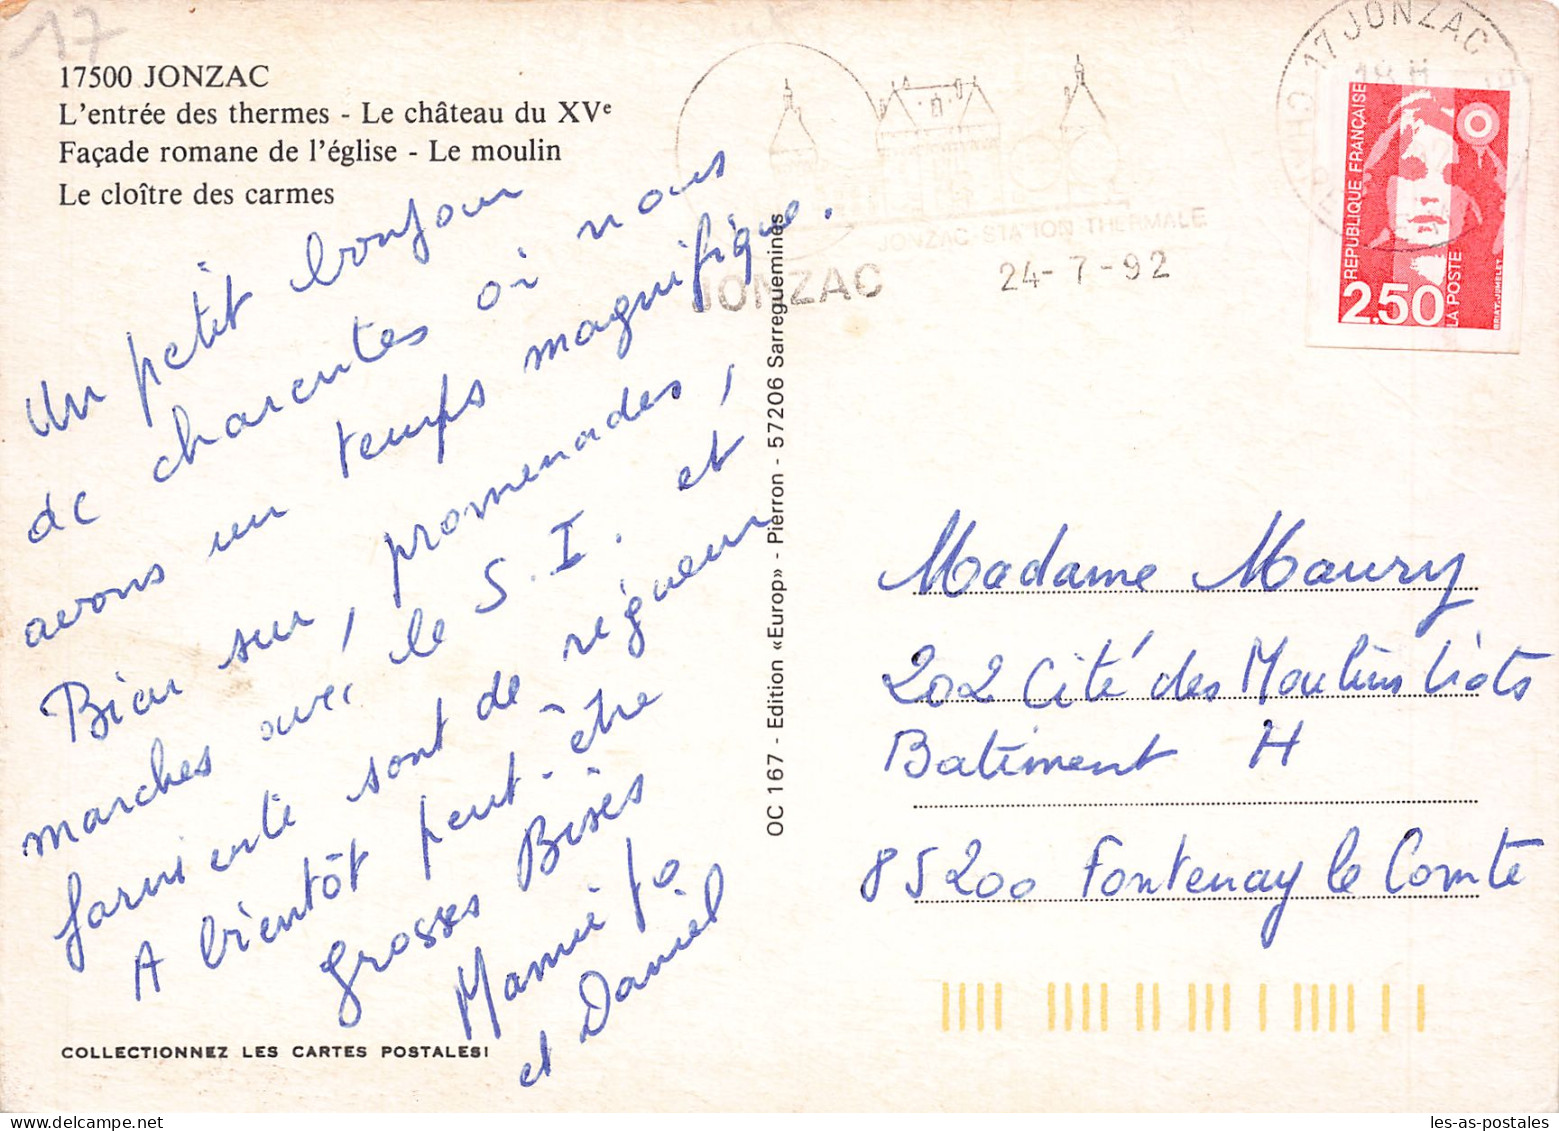 17
17500 JONZAC
L'entrée des thermes - Le château du XVe
Façade romane de l'église - Le moulin
Le cloître des carmes
Un petit bonjour
de charentes où nous
avons un temps magnifique.
Bien sur, promenades,
marches avec le S.I. et
farniente sont de rigueur
A bientôt peut-être
Grosses Bises
Mamie Jo
et Daniel
COLLECTIONNEZ LES CARTES POSTALES!
OC 167 - Edition «Europ» - Pierron - 57206 Sarreguemines
JONZAC-STATION THERMALE
JONZAC
24-7-92
17 JONZAC
18 H
REPUBLIQUE FRANÇAISE
2,50
LA POSTE
Madame Maury
202 Cité des Moulins Liots
Batiment H
85200 Fontenay le Comte
les-as-postales